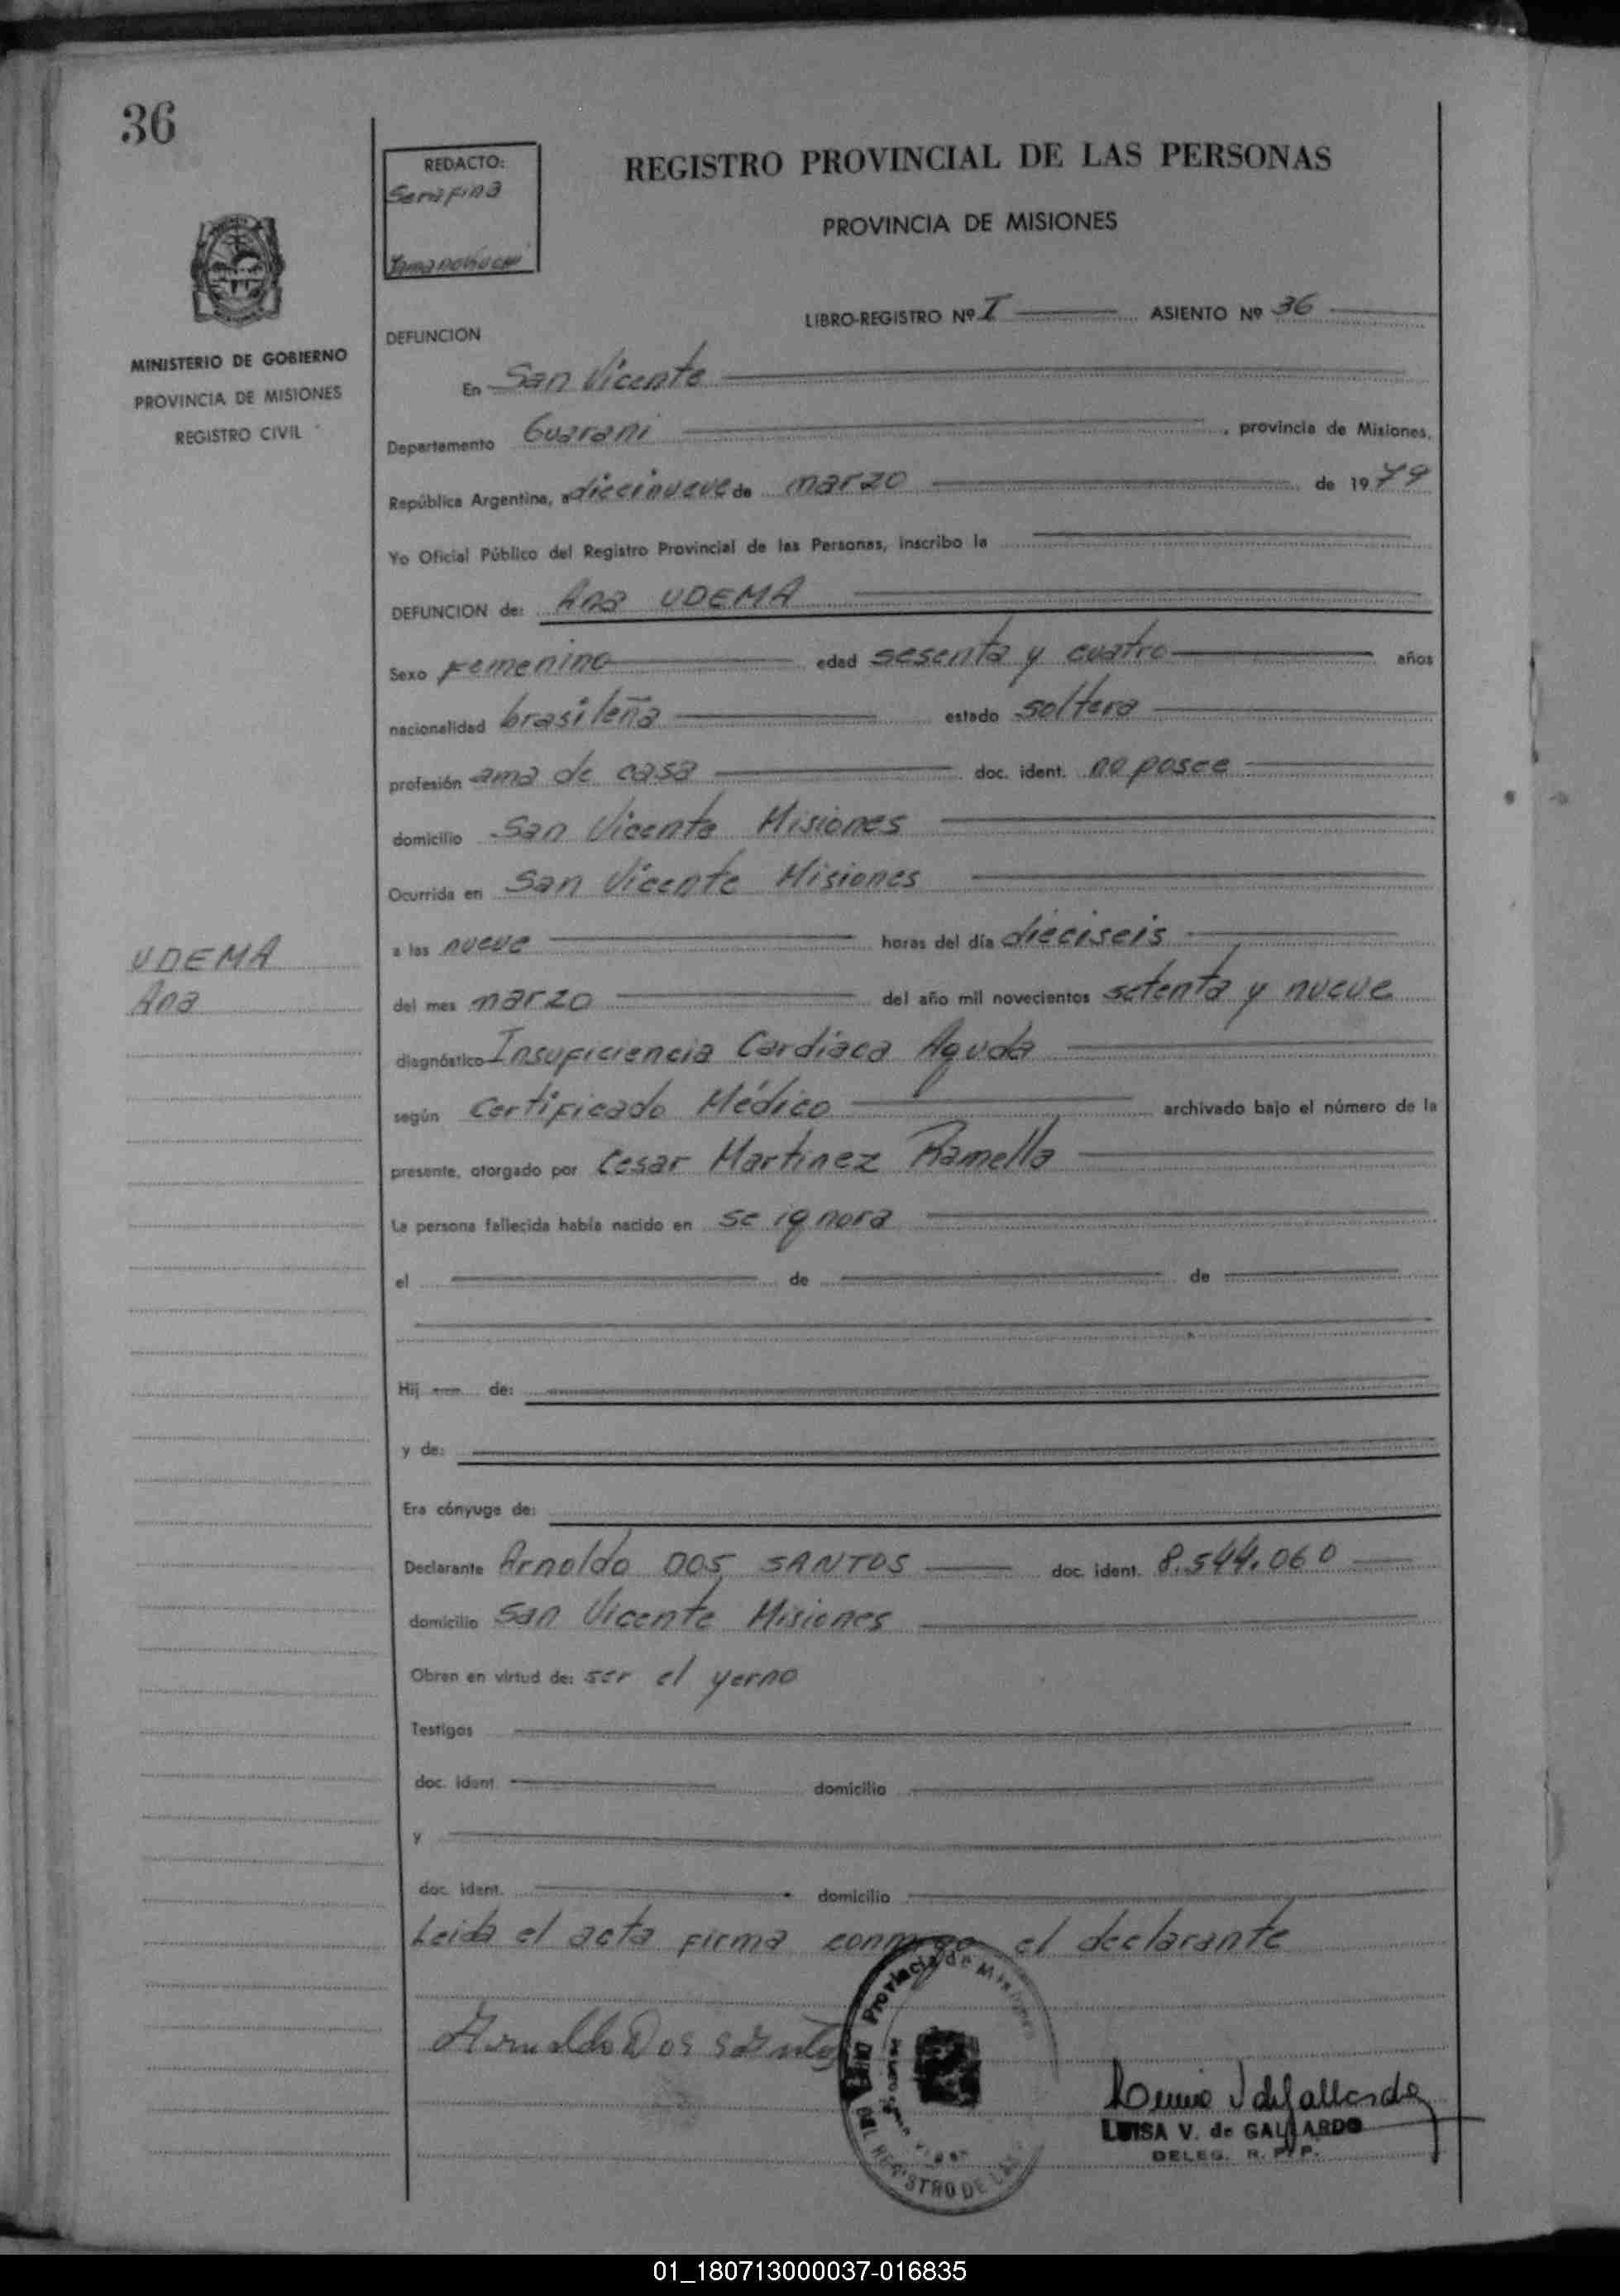 36
REDACTO:
Serafina
REGISTRO PROVINCIAL DE LAS PERSONAS
PROVINCIA DE MISIONES
LIBRO-REGISTRO Nº I ASIENTO Nº 36
MINISTERIO DE GOBIERNO
PROVINCIA DE MISIONES
REGISTRO CIVIL
DEFUNCION
En San Vicente
Departamento Guarani, provincia de Misiones,
República Argentina, a diecinueve de marzo de 1979
Yo Oficial Público del Registro Provincial de las Personas, inscribo la
DEFUNCION de: Ana UDEMA
Sexo Femenino edad sesenta y cuatro años
nacionalidad brasileña estado soltera
profesión ama de casa doc. ident. no posee
domicilio San Vicente Misiones
Ocurrida en San Vicente Misiones
UDEMA
Ana
a las nueve horas del día dieciseis
del mes marzo del año mil novecientos setenta y nueve
diagnóstico Insuficiencia Cardiaca Aguda
según Certificado Médico archivado bajo el número de la
presente, otorgado por Cesar Martinez Ramella
La persona fallecida había nacido en se ignora
el de de
Hij de:
y de:
Era cónyuge de:
Declarante Arnoldo DOS SANTOS doc. ident. 8.544.060
domicilio San Vicente Misiones
Obran en virtud de: ser el yerno
Testigos
doc. ident. domicilio
y
doc. ident. domicilio
Leida el acta firma conmigo el declarante
Provincia de Misiones
DEL REGISTRO DE LAS
Arnaldo Dos Santos
LUISA V. de GALLARDO
DELEG. R. P. P.
01_180713000037-016835